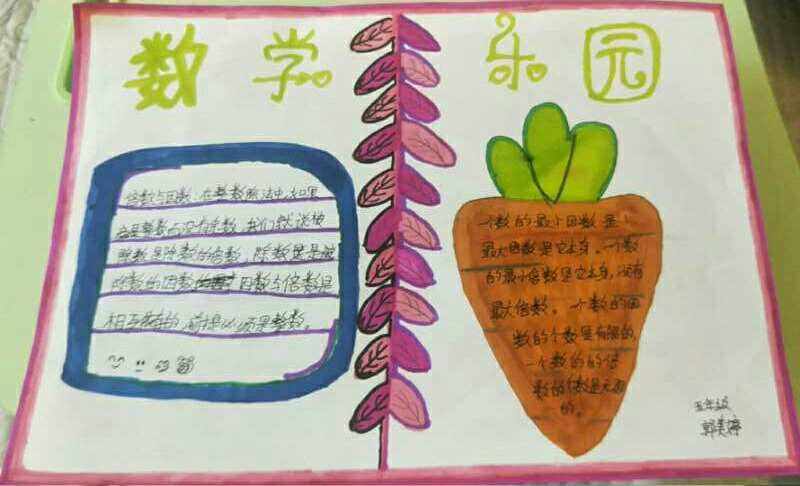 数学乐园
倍数与因数：在整数除法中，如果
商是整数而没有余数，我们就说被
除数是除数的倍数，除数是被
除数的因数 因数与倍数是
相互依存的，前提必须是整数。
一个数的最小因数是1
最大因数是它本身。一个数
的最小倍数是它本身，没有
最大倍数。一个数的因
数的个数是有限的，
一个数的的倍
数的个数是无限
的。
五年级
郭美婷